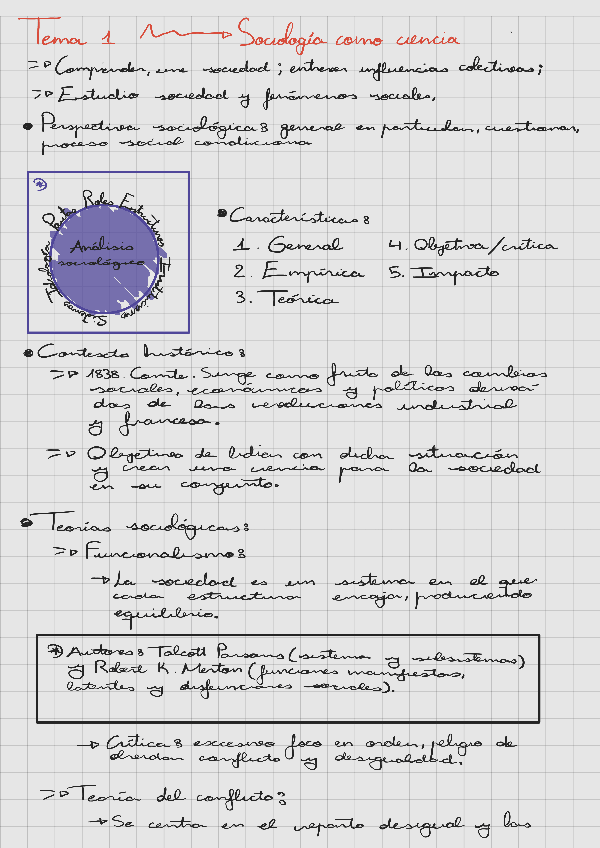 Tema 1 Sociología como ciencia
=> Comprender, une sociedad; entrever influencias colectivas;
=> Estudio sociedad y fenómenos sociales.
• Perspectiva sociológica: general en particular, cuestionar,
proceso social condiciona
Pautas Roles Estructuras
Análisis
sociológico
• Características:
1. General
2. Empírica
3. Teórica
4. Objetiva/crítica
5. Impacto
• Contexto histórico:
=> 1838. Comte. Surge como fruto de los cambios
sociales, económicos y políticos deriva-
dos de las revoluciones industrial
y francesa.
=> Objetivo de lidiar con dicha situación
y crear una ciencia para la sociedad
en su conjunto.
• Teorías sociológicas:
=> Funcionalismo:
→ La sociedad es un sistema en el que
cada estructura encaja, produciendo
equilibrio.
* Autores: Talcott Parsons (sistema y subsistemas)
y Robert K. Merton (funciones manifiestas,
latentes y disfunciones sociales).
→ Crítica: excesivo foco en orden, peligro de
conflicto y desigualdad.
=> Teoría del conflicto:
→ Se centra en el reparto desigual y las